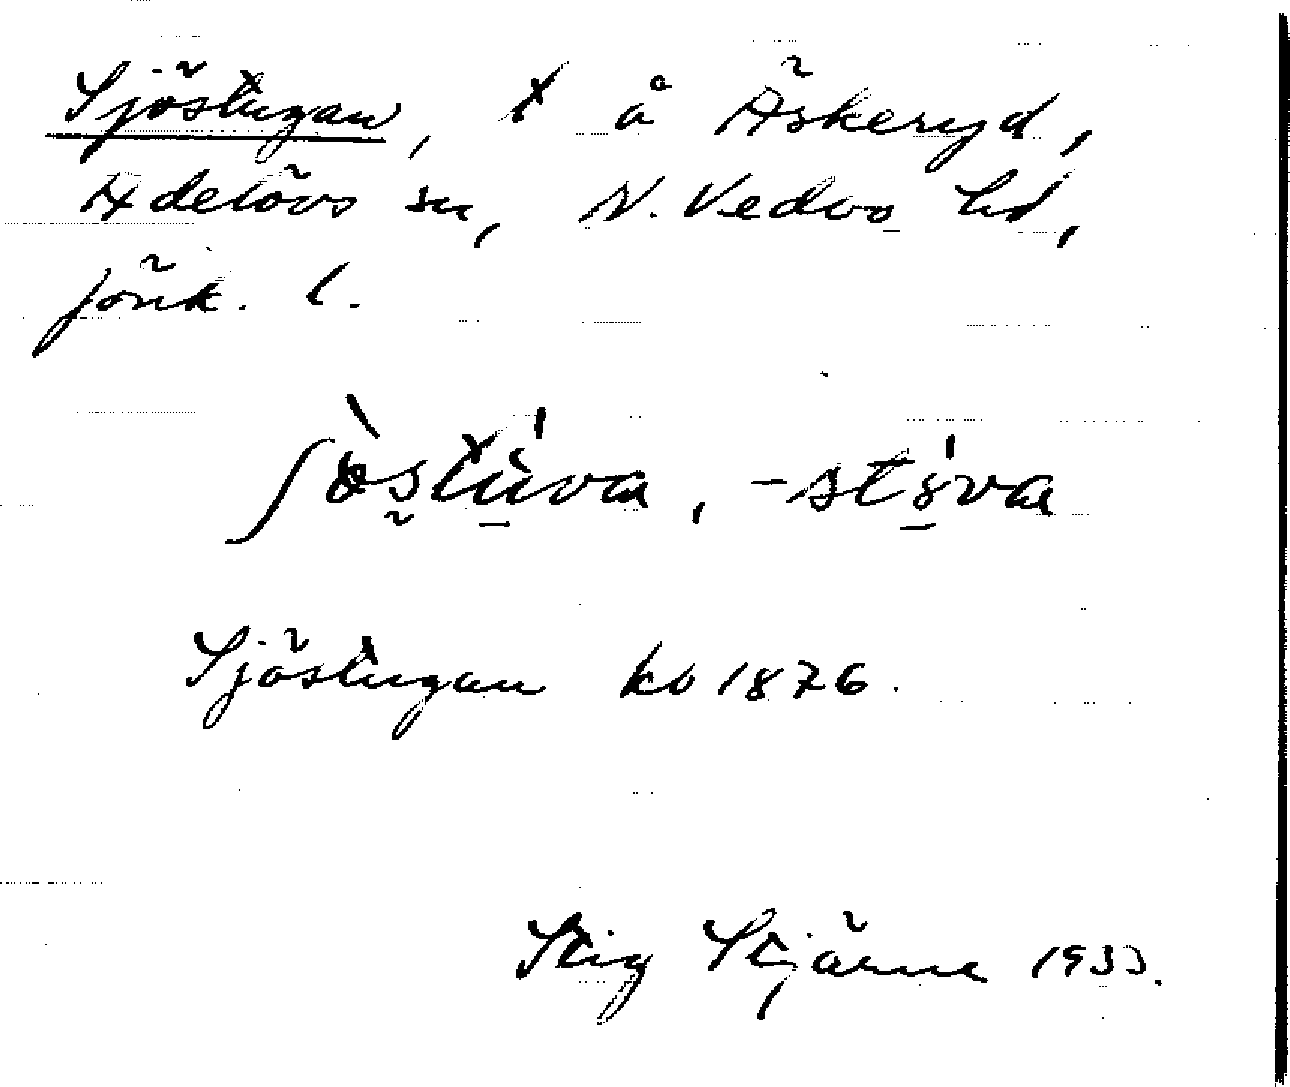 Sjöstugan, t å Äskeryd,
Adelövs sn, N. Vedbo hd,
Jönk. l.
ʃòstùva, -stȣ́va
Sjöstugan kb 1876.
Stig Stjärne 1933.